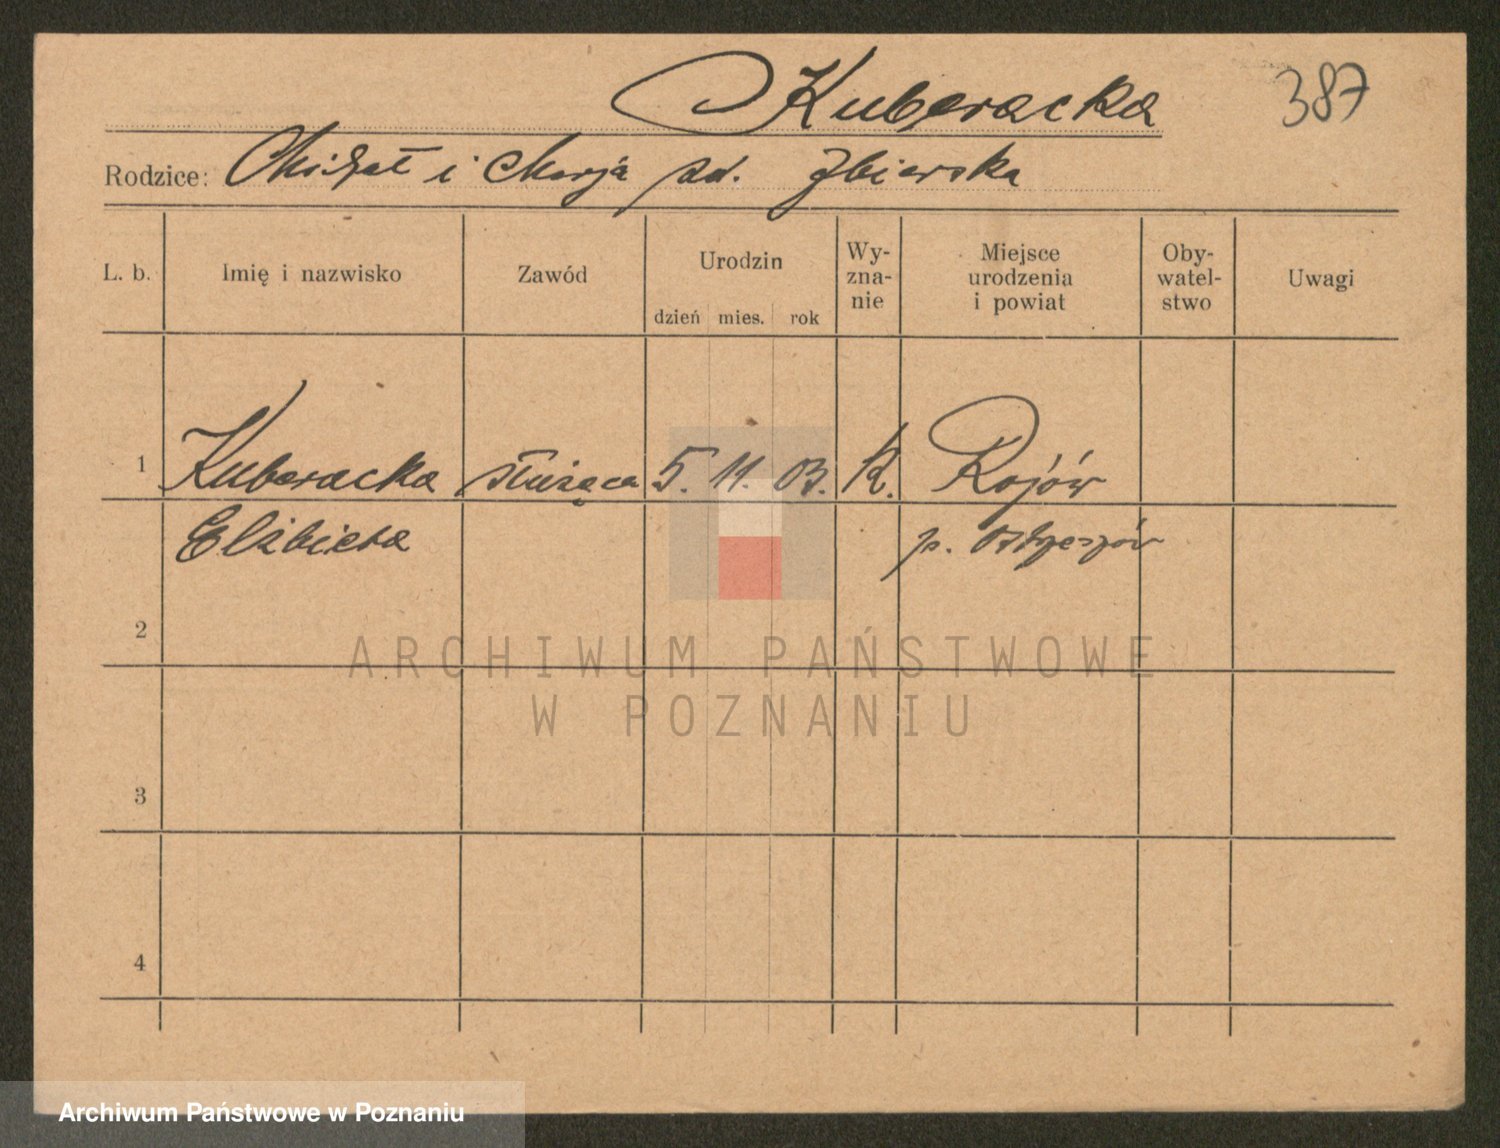 Kuberacka 387
Rodzice: Michał i Marja zd. Zbierska
L. b. Imię i nazwisko Zawód Urodzin dzień mies. rok Wy-zna-nie Miejsce urodzenia i powiat Oby-watel-stwo Uwagi
1 Kuberacka służąca 5. 11. 03. K. Rojów
Elżbieta p. Ostrzeszów
2
ARCHIWUM PAŃSTWOWE
W POZNANIU
3
4
Archiwum Państwowe w Poznaniu